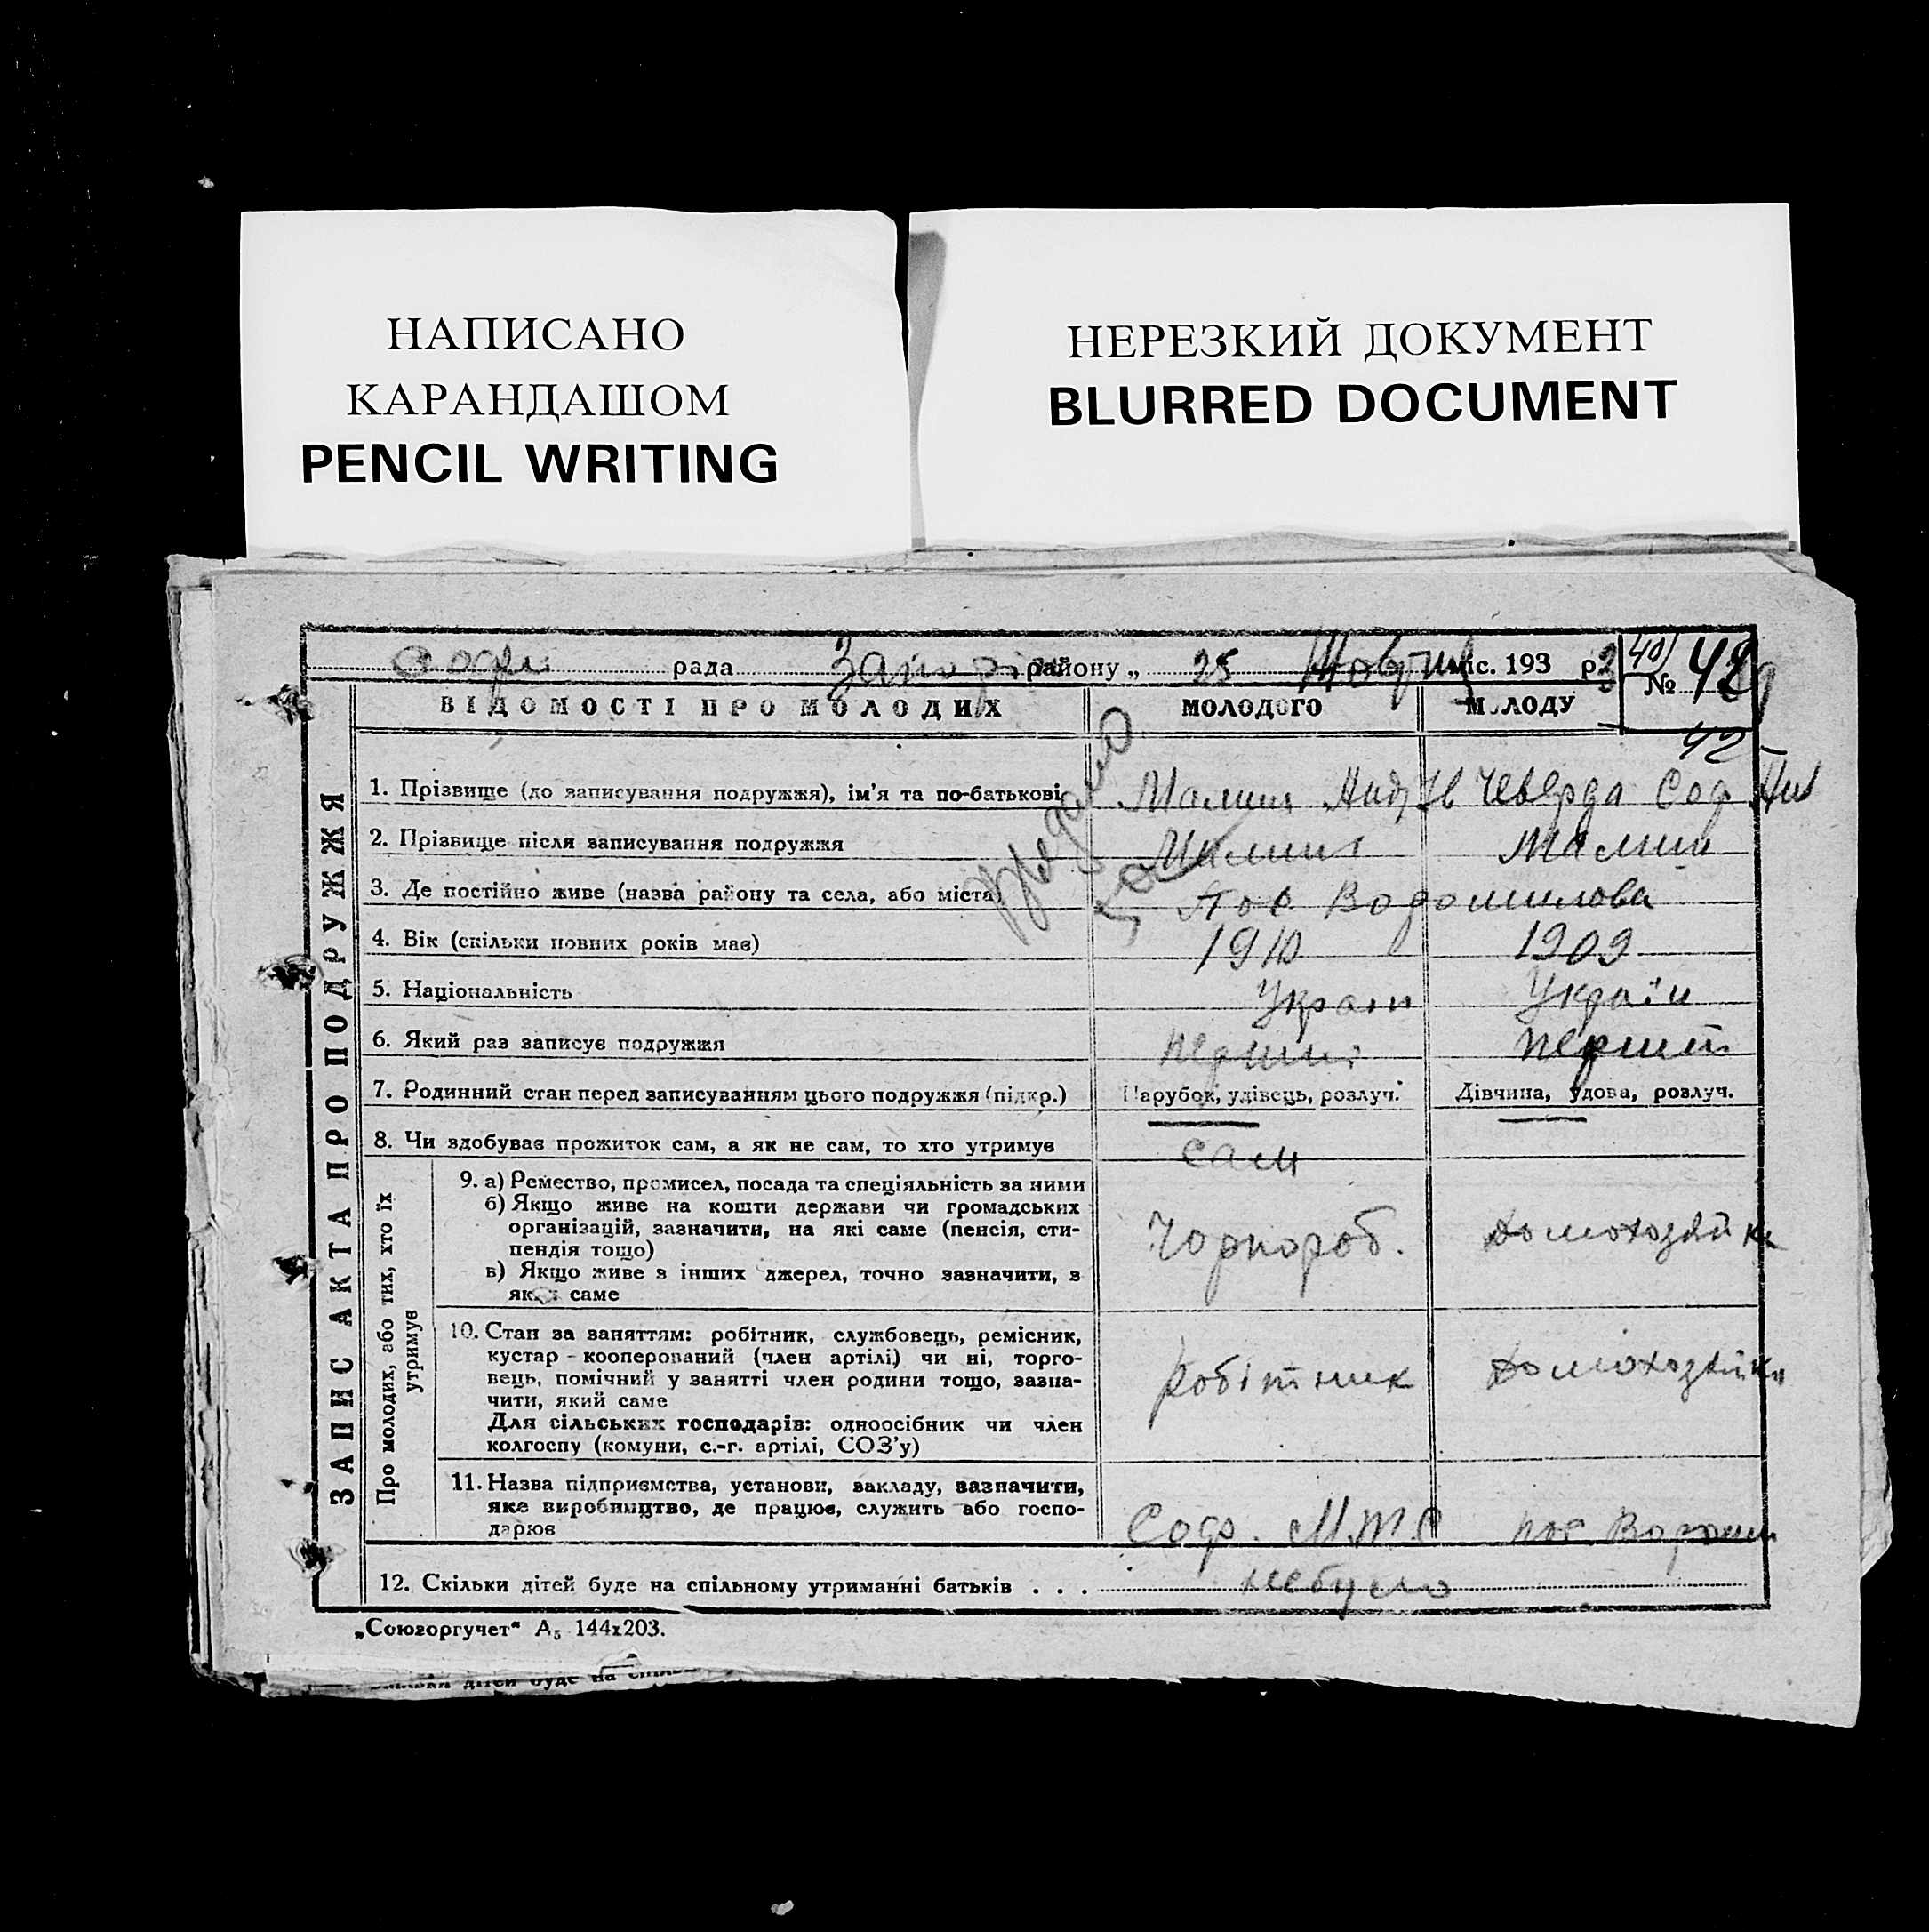 НАПИСАНО
КАРАНДАШОМ
PENCIL WRITING
НЕРЕЗКИЙ ДОКУМЕНТ
BLURRED DOCUMENT
рада району „ 25 Жовтня міс. 193 3 р. 40 № 42
ВІДОМОСТІ ПРО МОЛОДИХ МОЛОДОГО МОЛОДУ
42
ЗАПИС АКТА ПРО ПОДРУЖЖЯ
1. Прізвище (до записування подружжя), ім'я та по-батькові Чеверда Соф
2. Прізвище після записування подружжя
3. Де постійно живе (назва району та села, або міста) пос Ворошилова
4. Вік (скільки повних років має) 1910 1909
5. Національність Украін Україн
6. Який раз записує подружжя перший
7. Родинний стан перед записуванням цього подружжя (підкр.) Парубок, удівець, розлуч. Дівчина, удова, розлуч.
8. Чи здобував прожиток сам, а як не сам, то хто утримує сам
Про молодих, або тих, хто їх утримує
9. а) Ремество, промисел, посада та спеціяльність за ними
б) Якщо живе на кошти держави чи громадських
організацій, зазначити, на які саме (пенсія, сти-
пендія тощо) Чорнороб. домохозяйка
в) Якщо живе з інших джерел, точно зазначити, з
яких саме
10. Стан за заняттям: робітник, службовець, ремісник,
кустар - кооперований (член артілі) чи ні, торго-
вець, помічний у занятті член родини тощо, зазна-
чити, який саме робітник домохозяйка
Для сільських господарів: одноосібник чи член
колгоспу (комуни, с.-г. артілі, СОЗ'у)
11. Назва підприємства, установи, закладу, зазначити,
яке виробництво, де працює, служить або госпо-
дарює Соф. М.Т.С пос. Ворошил
12. Скільки дітей буде на спільному утриманні батьків . . . небуло
„Союзоргучет“ А5 144х203.